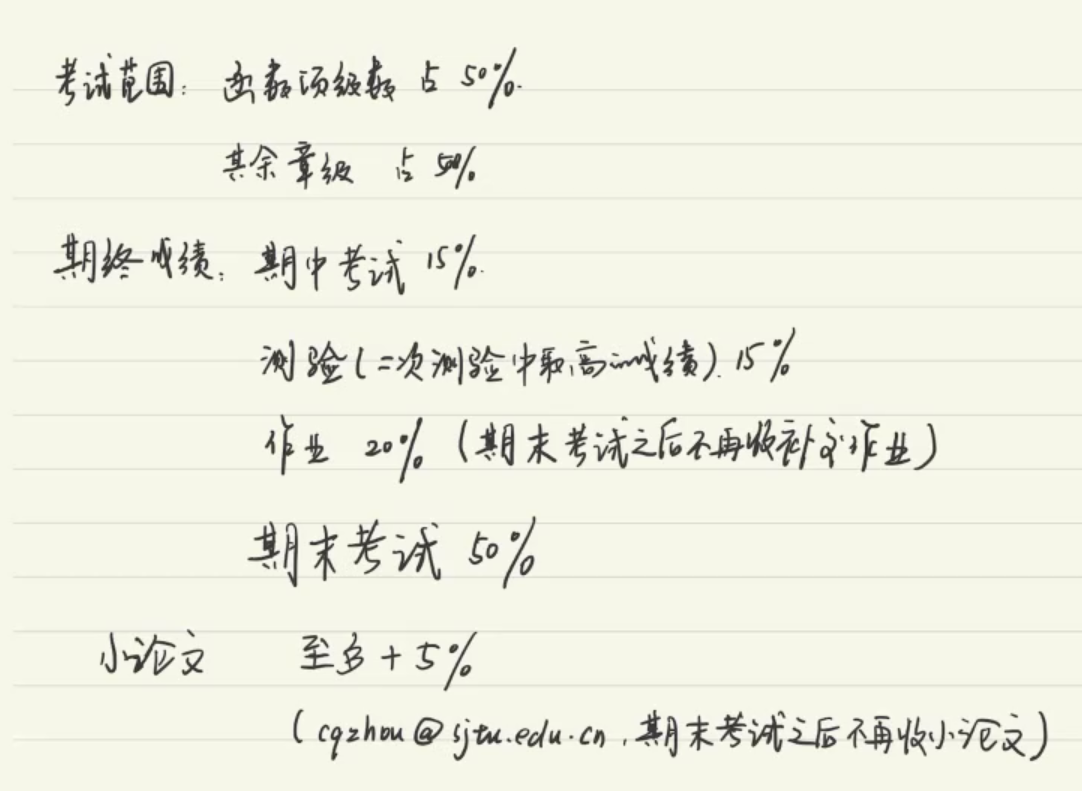 考试范围: 函数项级数 占 50%.
其余章级 占 50%.
期终成绩: 期中考试 15%.
测验(二次测验中取高的成绩). 15%
作业 20% (期末考试之后不再收补交作业)
期末考试 50%
小论文 至多+5%
(cqzhou@sjtu.edu.cn, 期末考试之后不再收小论文)